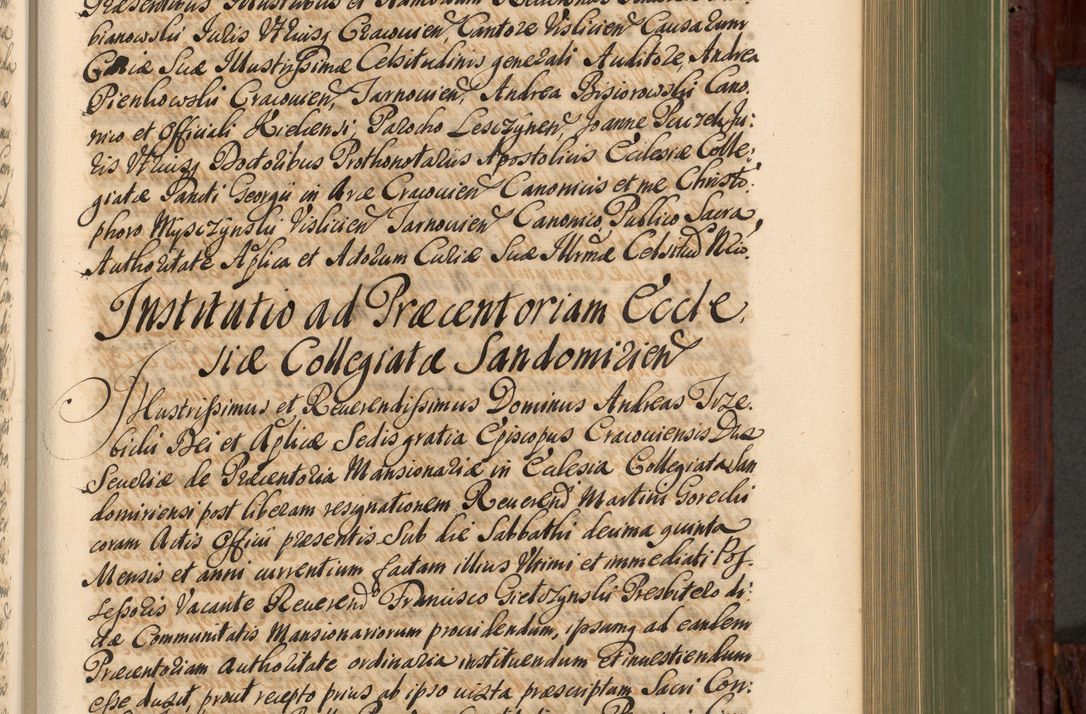 bianowski Juris Utriusq Cracouien, Cantore Visliciens Causarum
Curiæ Suæ Illustrissimæ Celsitudinis generali Auditore, Andrea
Pienkowski Cracouien, Tarnouien, Andrea Bisiorowski Cano,
nico et Officiali Kielcensi, Parocho Lesczynen, Joanne Paczek Ju:
ris Utriusq Doctoribus Prothonotariis Apostolicis Ecclesiæ Colle:
giatæ Sancti Georgii in Arce Cracouien Canonicis et me Christo:
phoro Mysczynski Vislicien Tarnouien Canonico, Publico Sacra
Authoritate Aplica et Actorum Curiæ Suæ Illrmæ Celsitud Nrio.
Institutio ad Præcentoriam Eccle,
siæ Collegiatæ Sandomirien
Illustrissimus et Reuerendissimus Dominus Andreas Trze,
bicki Dei et Aplicæ Sedis gratia Episcopus Cracouiensis Dux
Seueriæ de Præcentoria Mansionariæ in Ecclesia Collegiata San
domiriensi post liberam resignationem Reuerend Martini Gorecki
coram Actis Officii præsentis Sub die Sabbathi decima quinta
Mensis et anni currentium factam illius Ultimi et immediati Pos,
sessoris Vacante Reuerendo Francisco Gietczynski Presbitero di:
ctæ Communitatis Mansionariorum prouidendum, ipsumq ad eandem
Præcentoriam Authoritate ordinaria instituendum et inuestiendum
esse duxit, prout recepto prius ab ipso iuxta præscriptam Sacri Con: